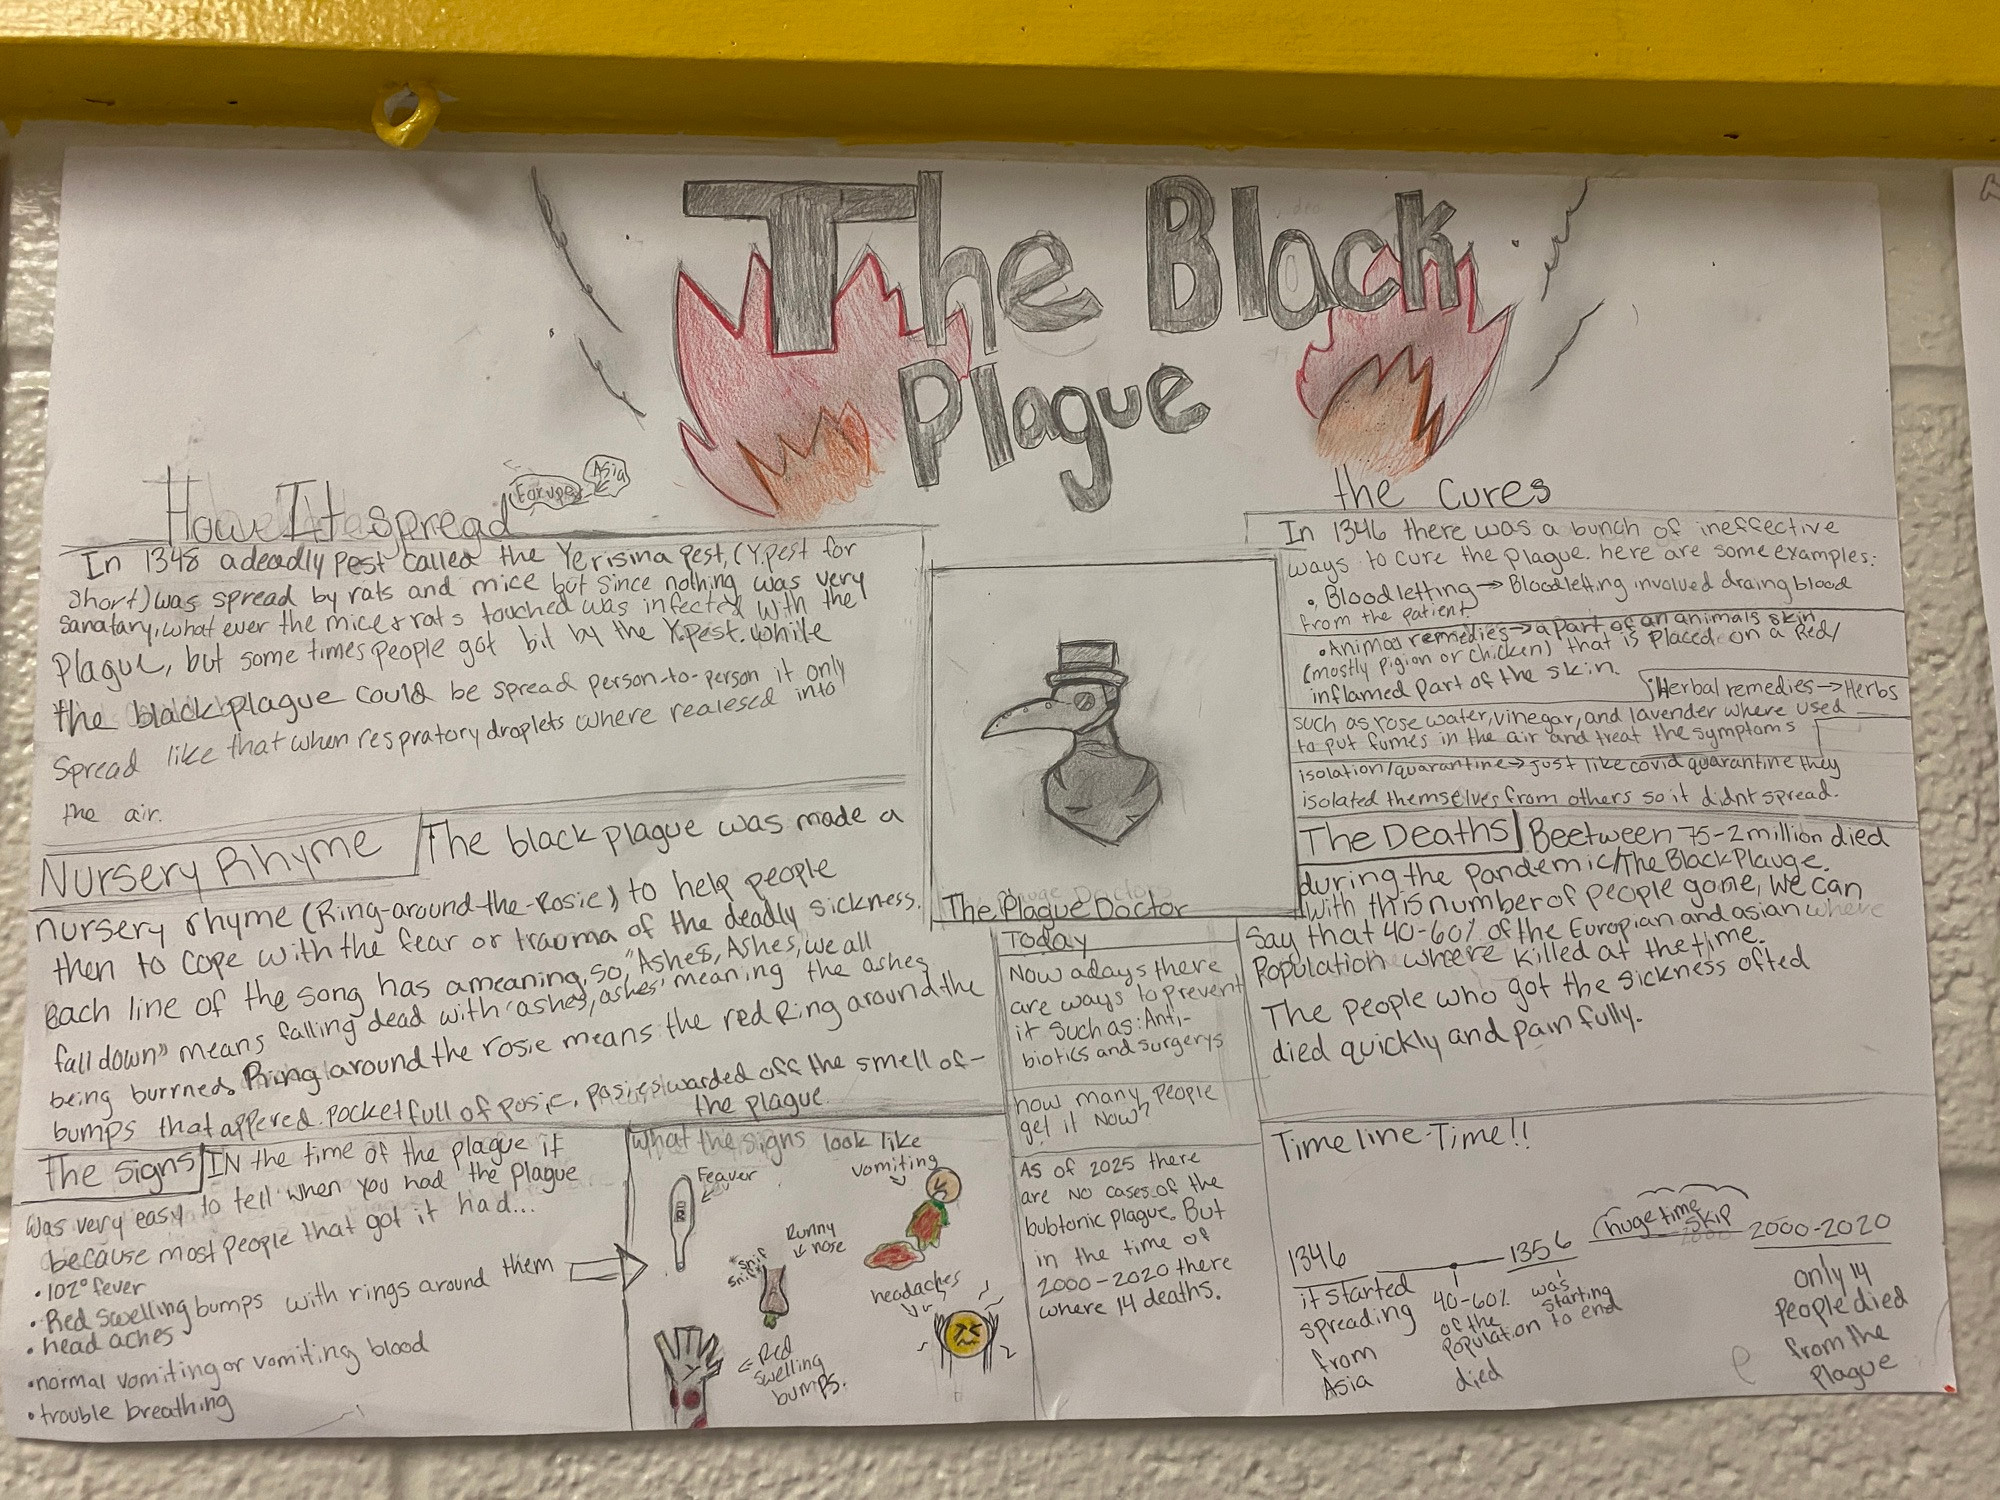 The Black
Plague
How It spread
Earupe
Asia
In 1348 a deadly pest called the Yerisina pest, (Y.pest for
short) was spread by rats and mice but since nothing was very
sanatary, what ever the mice & rats touched was infected with the
Plague, but some times people got bit by the Y.pest. while
the black plague could be spread person-to-person it only
Spread like that when respratory droplets where realesed into
the air.
Nursery Rhyme
The black plague was made a
nursery rhyme (Ring-around-the-Rosie) to help people
then to cope with the fear or trauma of the deadly sickness.
Each line of the song has a meaning, so, "Ashes, Ashes, we all
fall down" means falling dead with 'ashes, ashes' meaning the ashes
being burrned. Ring around the rosie means the red Ring around the
bumps that appered. pocket full of posie, posies warded off the smell of-
the plague.
The signs
IN the time of the plague it
was very easy to tell when you had the plague
because most people that got it had...
• 102° fever
• Red swelling bumps with rings around them
• head aches
• normal vomiting or vomiting blood
• trouble breathing
What the signs look like
Feaver
vomiting
Runny
nose
*snif
snif*
headaches
Red
swelling
bumps.
The Plague Doctor
Today
Now adays there
are ways to prevent
it such as: Anti-
biotics and surgerys
how many people
get it Now?
As of 2025 there
are no cases of the
bubtonic plague. But
in the time of
2000-2020 there
where 14 deaths.
the cures
In 1346 there was a bunch of ineffective
ways to cure the plague. here are some examples:
• Bloodletting → Bloodletting involved draing blood
from the patient
• Animas remedies → a part of an animals skin
(mostly pigion or chicken) that is placed on a Red/
inflamed part of the skin.
• Herbal remedies → Herbs
such as rose water, vinegar, and lavender where used
to put fumes in the air and treat the symptoms
isolation/quarantine → just like covid quarantine they
isolated themselves from others so it didnt spread.
The Deaths
Beetween 75-2 million died
during the Pandemic/The Black Plauge.
With this number of people gone, we can
Say that 40-60% of the Europian and asian
Population where killed at the time.
The people who got the sickness ofted
died quickly and painfully.
Time line-Time!!
huge time
skip
1346
1356
2000-2020
it started
spreading
from
Asia
40-60%
of the
Population
died
was
starting
to end
only 14
people died
from the
Plague